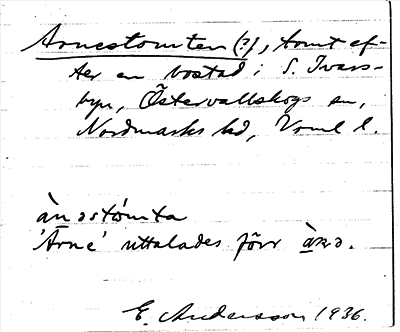 Arnestomten (?), tomt ef-
ter en bostad i S. Ivars-
byn, Östervallskogs sn,
Nordmarks hd, Vrml l.
ànəstómta
'Arne' uttalades förr àṇə.
E. Andersson 1936.